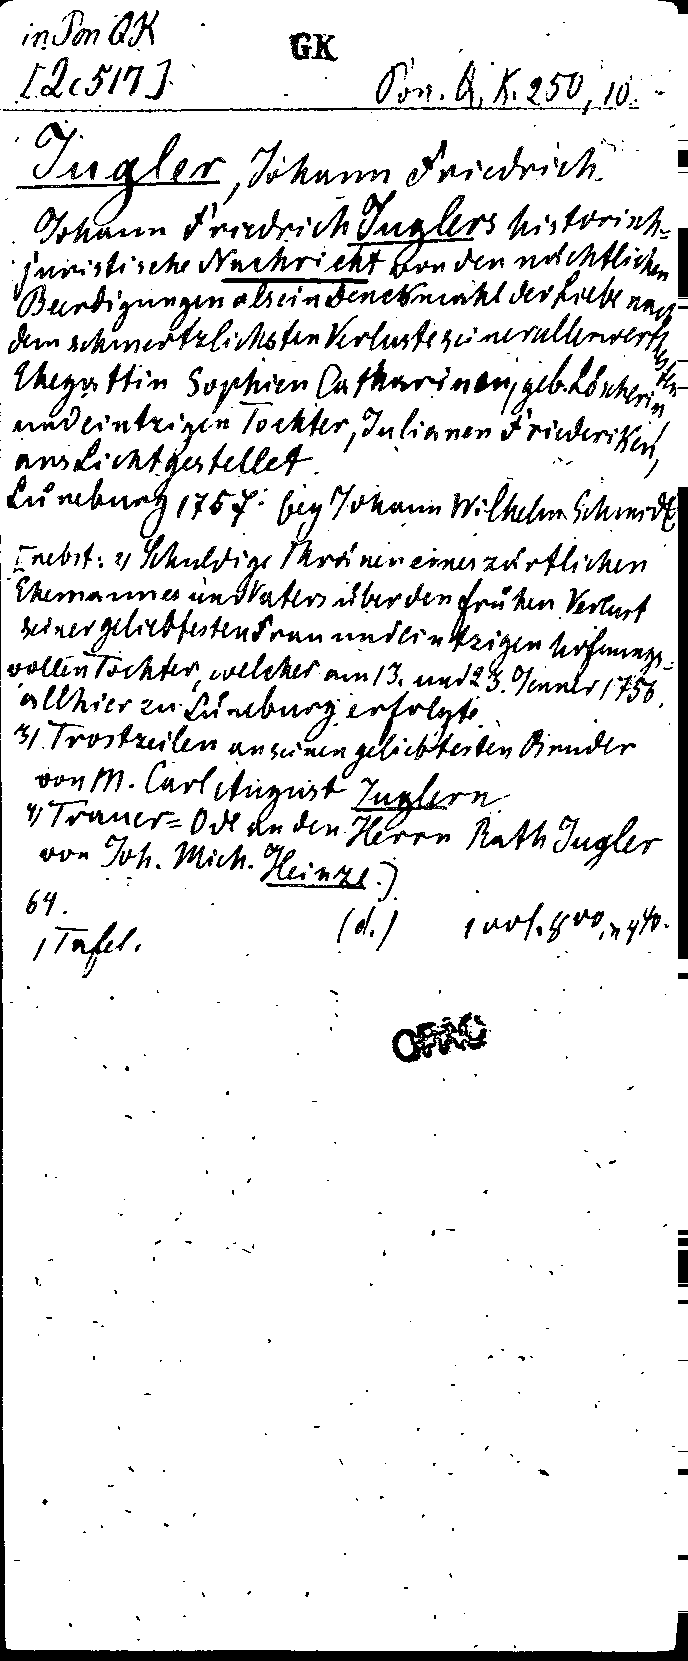 in Pon QK
GK
[2c517]
Pon. Q. K. 250, 10.
Jugler, Johann Friedrich.
Johann Friedrich Juglers historisch=
juristische Nachricht von den nächtlichen
Beerdigungen als ein Denckmahl der Liebe nach
dem schmertzlichsten Verluste seiner allerwerthesten
Ehegattin Sophien Catharinen, geb. Löscherin,
und eintzigen Tochter, Julianen Friederiken,
ans Licht gestellet.
Lüneburg 1757. bey Johann Wilhelm Schmidt
[nebst: 2) Schuldige Thränen eines zärtlichen
Ehemannes und Vaters über den frühen Verlust
seiner geliebtesten Frau und eintzigen hofnungs=
vollen Tochter, welcher am 13. und 23. Jenner 1756.
allhier zu Lüneburg erfolgte.
3) Trostzeilen an seinen geliebtesten Bruder
von M. Carl August Juglern.
4) Trauer=Ode an den Herrn Rath Jugler
von Joh. Mich. Heinze.]
64.
1 Tafel.
(d.)
OPAC